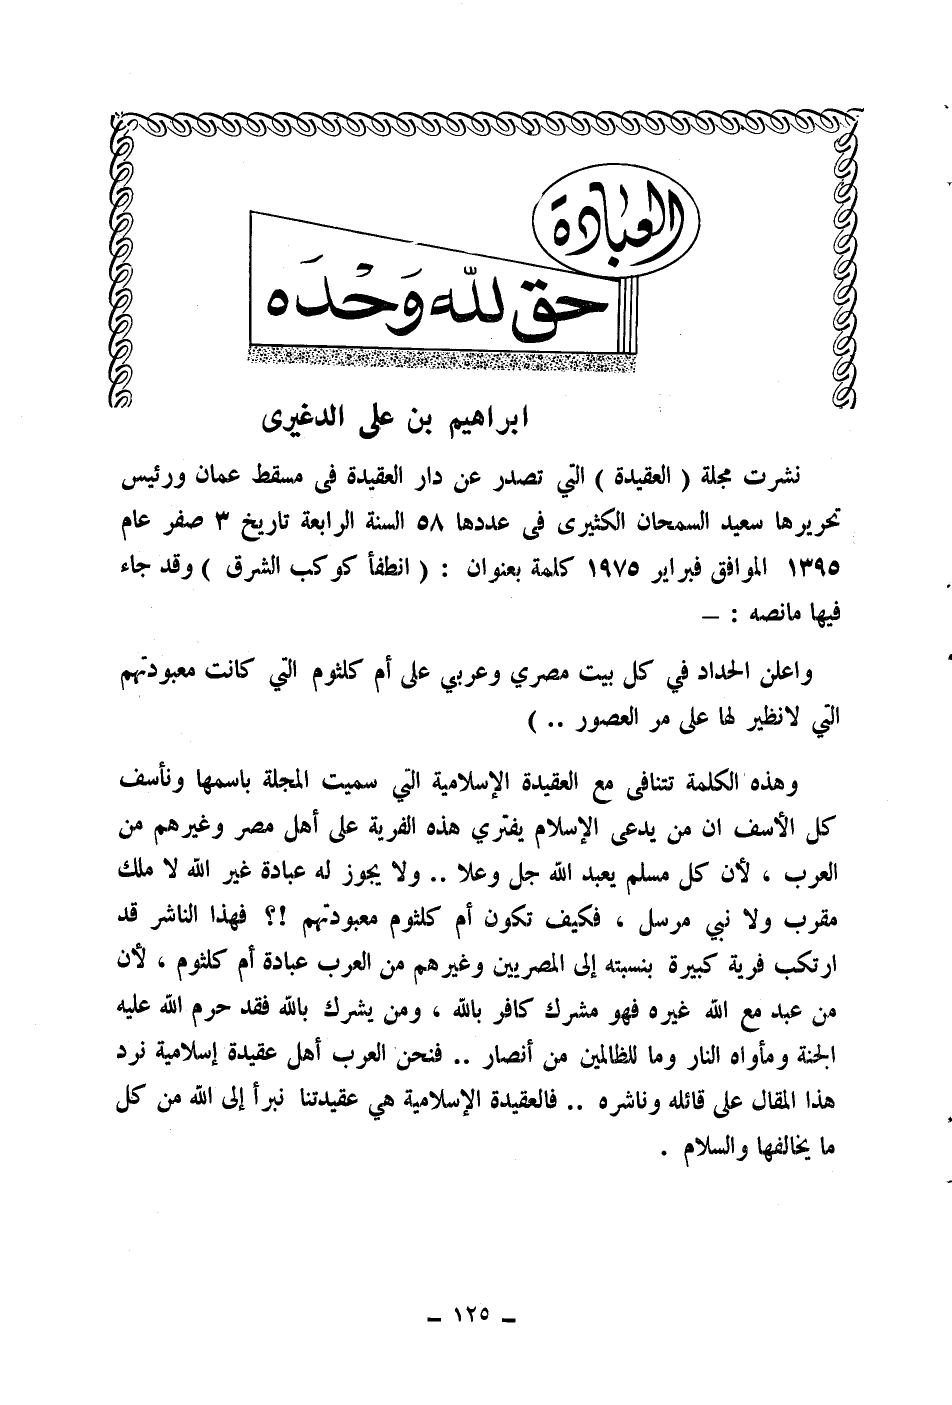 العبادة
حق لله وَحْدَه
ابراهيم بن على الدغيرى
نشرت مجلة ( العقيدة ) التي تصدر عن دار العقيدة فى مسقط عمان ورئيس
تحريرها سعيد السمحان الكثيرى فى عددها ٥٨ السنة الرابعة تاريخ ٣ صفر عام
١٣٩٥ الموافق فبراير ١٩٧٥ كلمة بعنوان : ( انطفأ كوكب الشرق ) وقد جاء
فيها مانصه : —
واعلن الحداد في كل بيت مصري وعربي على أم كلثوم التي كانت معبودتهم
التي لانظير لها على مر العصور .. )
وهذه الكلمة تتنافى مع العقيدة الإسلامية التي سميت المجلة باسمها ونأسف
كل الأسف ان من يدعى الإسلام يفتري هذه الفرية على أهل مصر وغيرهم من
العرب ، لأن كل مسلم يعبد الله جل وعلا .. ولا يجوز له عبادة غير الله لا ملك
مقرب ولا نبي مرسل ، فكيف تكون أم كلثوم معبودتهم !؟ فهذا الناشر قد
ارتكب فرية كبيرة بنسبته إلى المصريين وغيرهم من العرب عبادة أم كلثوم ، لأن
من عبد مع الله غيره فهو مشرك كافر بالله ، ومن يشرك بالله فقد حرم الله عليه
الجنة ومأواه النار وما للظالمين من أنصار .. فنحن العرب أهل عقيدة إسلامية نرد
هذا المقال على قائله وناشره .. فالعقيدة الإسلامية هي عقيدتنا نبرأ إلى الله من كل
ما يخالفها والسلام .
— ١٢٥ —